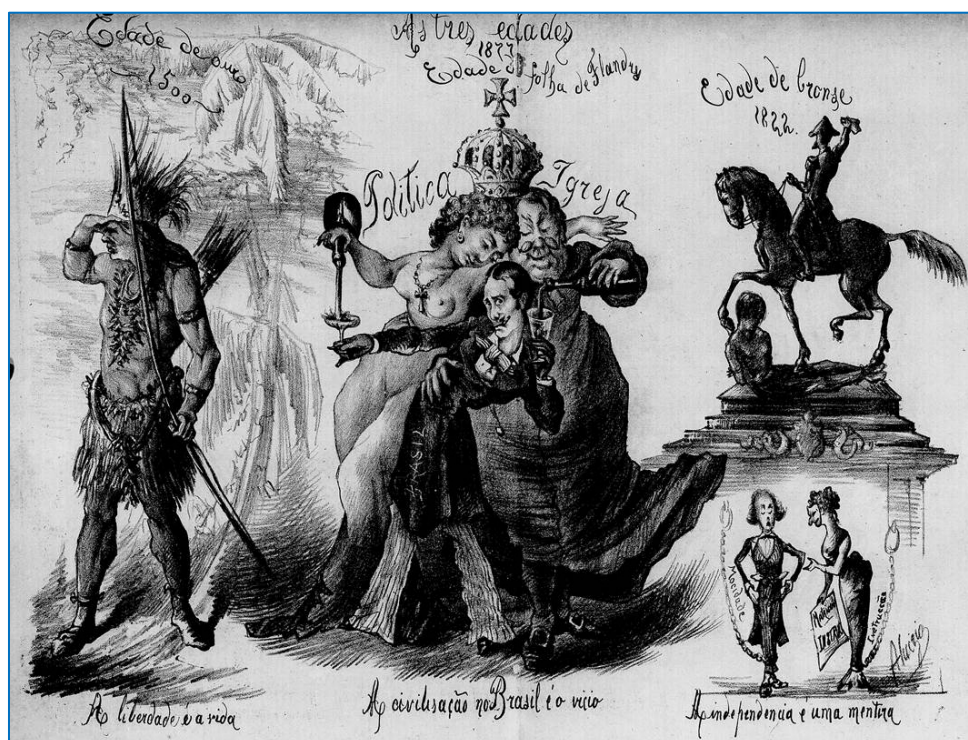 As tres edades
Edade de ouro
1500
1877
Edade de folha de Flandres
Edade de bronze
1822.
Politica
Igreja
BRASIL
Mocidade
Instrucção
A liberdade é a vida
A civilisação no Brasil é o vicio
A independencia é uma mentira